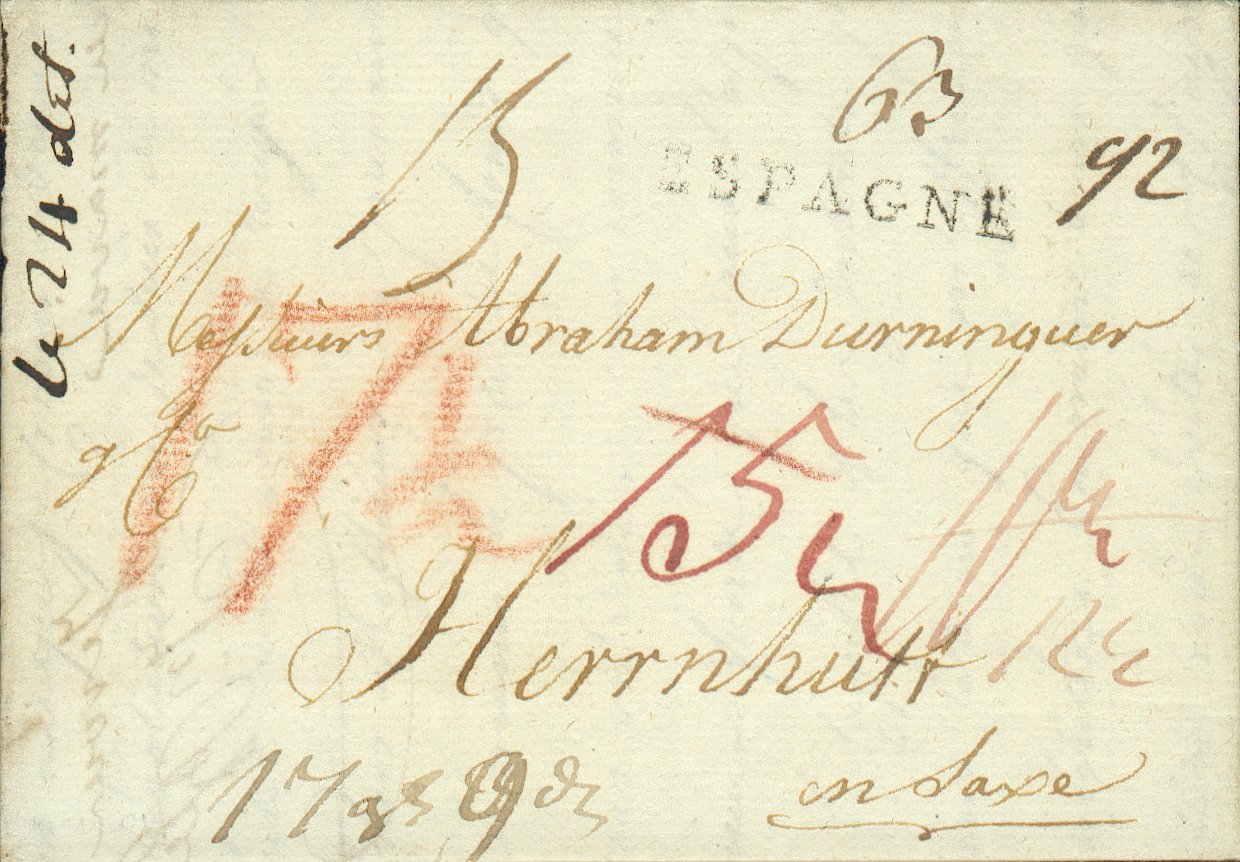 le 24 dit.
15
63
92
ESPAGNE
Messieurs Abraham Durninguer
& Co
17½
15
Herrnhutt
17 9
en Saxe